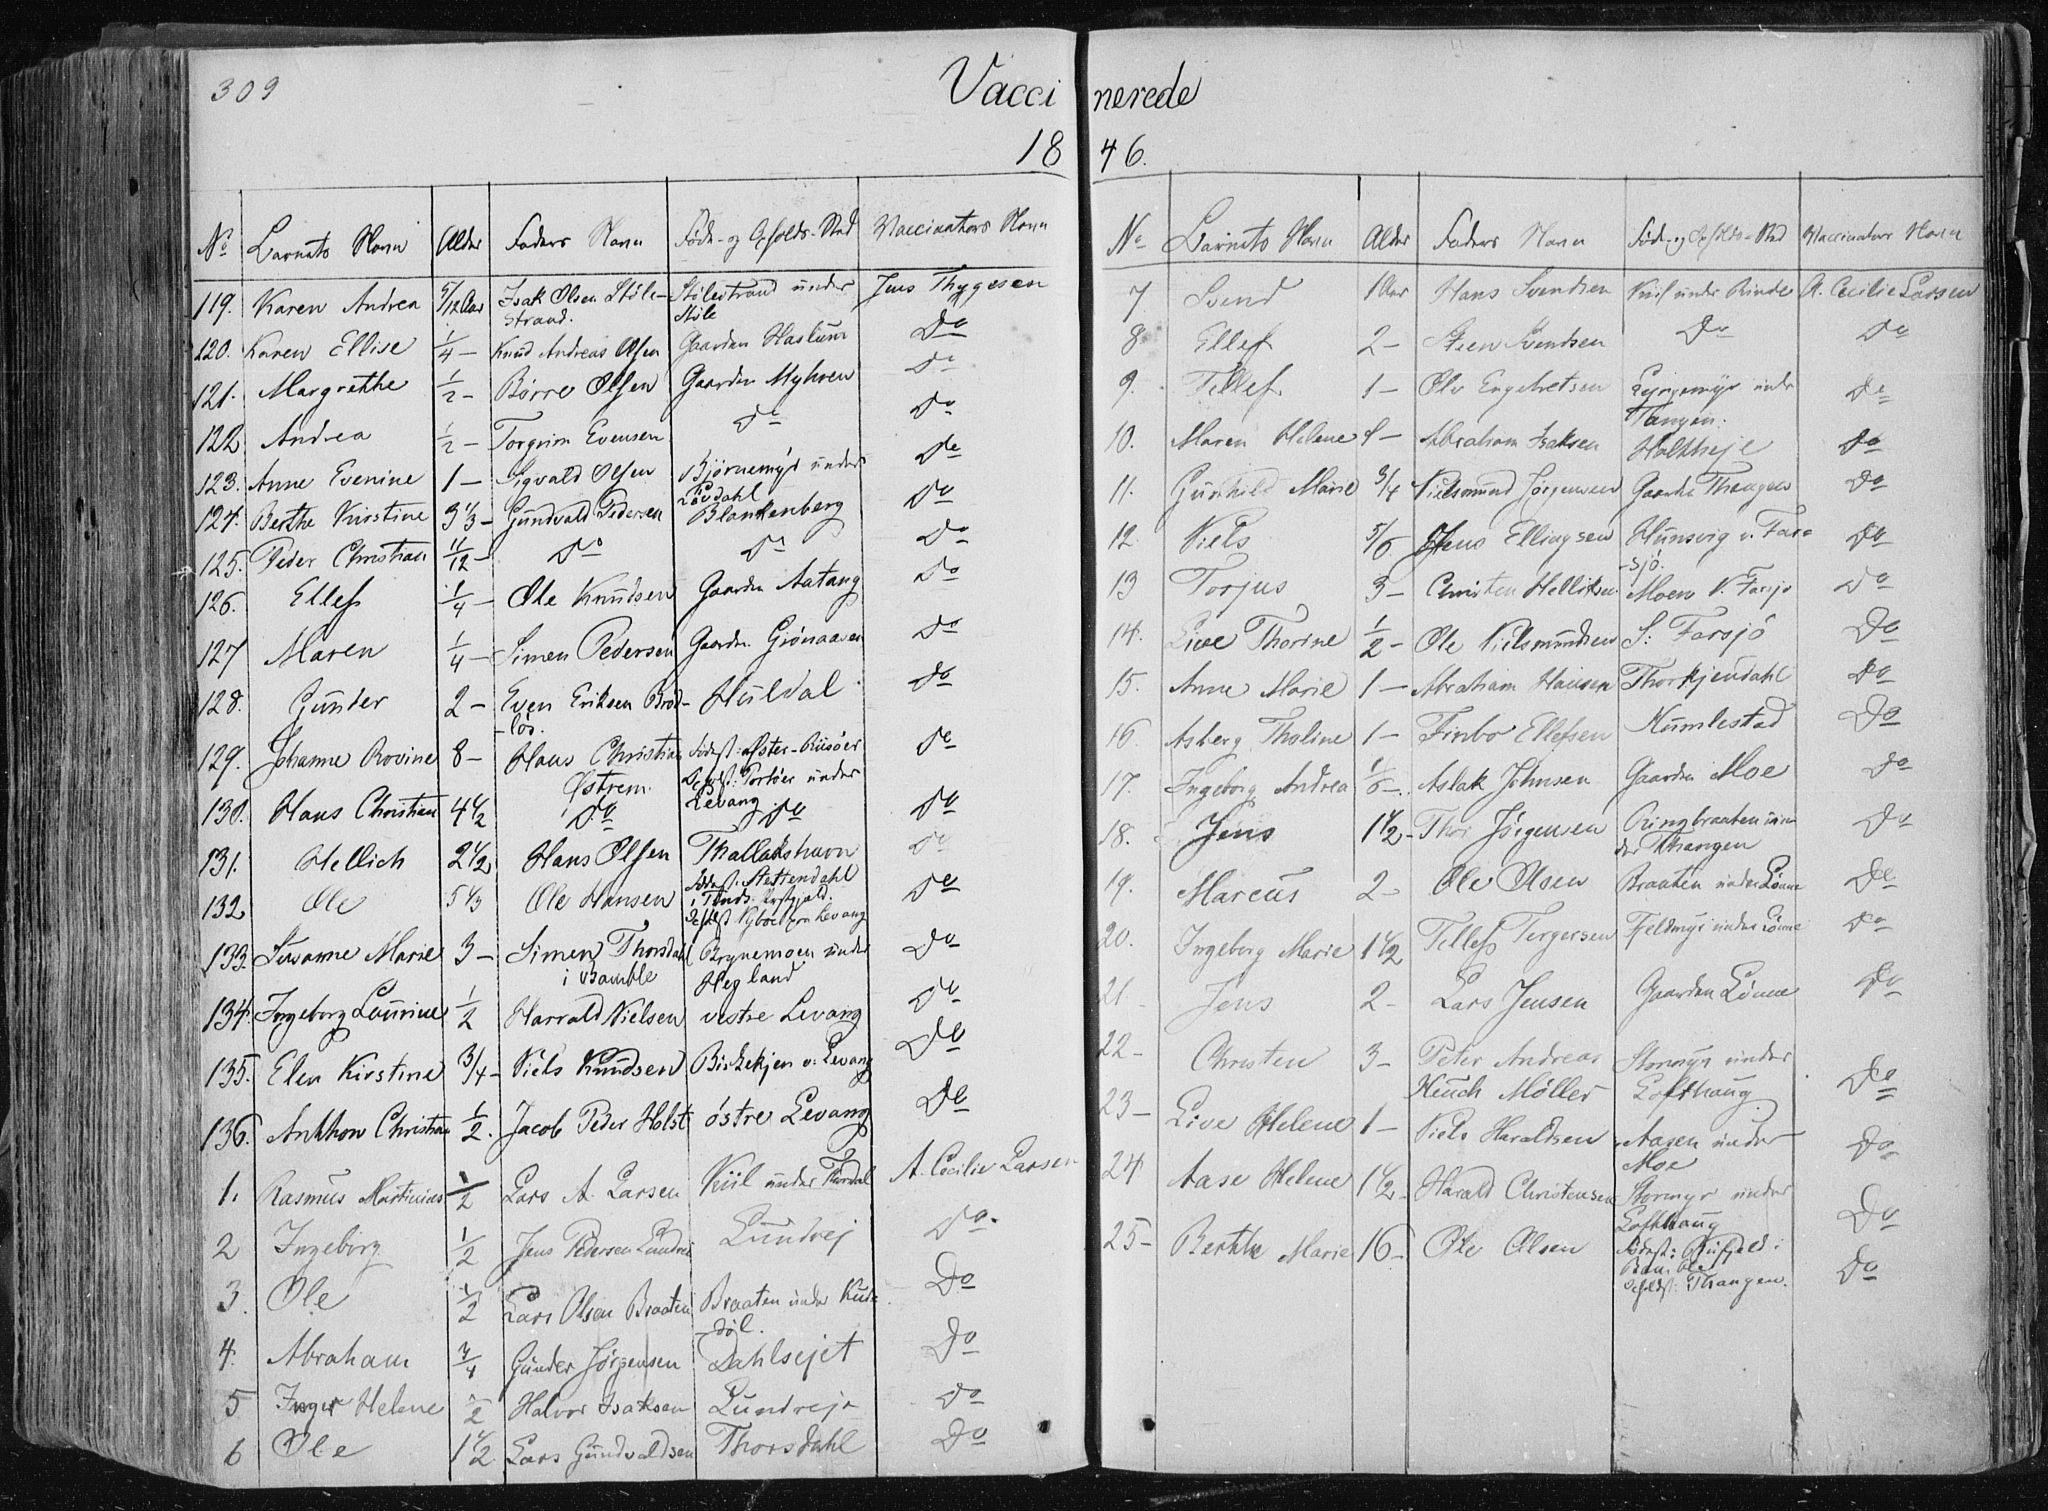 309
Vaccinerede
1846.
No Barnets Navn Alder Faders Navn Føde- og Opholds-Sted Vaccinators Navn
119. Karen Andrea 5/12 Aar Isak Olsen Støle- Stølestrand under Jens Thygesen
strand. Støle
120. Karen Ellise 1/4 – Knud Andreas Olsen Gaarden Haslum Do
121. Margrethe 1/2 – Børre Olsen Gaarden Myhren Do
122. Andrea 1/2 – Torgrim Evensen Do Do
123. Anne Evenine 1 – Sigvald Olsen Bjørnemyr under Do
Løvdahl
124. Berthe Kirstine 3 1/3 – Gundvald Pedersen Blankenberg Do
125. Peder Christian 11/12 – Do Do Do
126. Ellef 1/4 – Ole Knudsen Gaarden Aatang Do
127 Maren 1/4 – Simen Pedersen Gaarden Grønaasen Do
128. Gunder 2 – Even Eriksen Brød- Huldal Do
-løs.
129. Johanne Rovine 8 – Hans Christian Fødest: Øster-Riisøer Do
Østrem Opholdst: Portøer under
Levang
130. Hans Christian 4 1/2 Do Do Do
131. Hellich 2 1/2 Hans Olsen Thallakshavn Do
132. Ole 5 1/3 Ole Hansen Fødest: Stettendahl Do
i Prstgjeld.
Levang
133. Susanne Marie 3 – Simen Thorsdahl Brynemoen under Do
i Bamble Hegland
134. Ingeborg Laurine 1/2 Harrald Nielsen vestre Levang Do
135. Elen Kirstine 3/4 – Niels Knudsen Birkekjen v: Levang Do
136. Anthon Christian 1/2. Jacob Peder Holst østre Levang Do
1. Rasmus Martinius 1/2 Lars A. Larsen Kiil under Thordal A. Cecilie Larsen
2 Ingeborg 1/2 Jens Pedersen Lundrei Lundrej Do.
3. Ole 1/2 Lars Olsen Braaten Braaten under Kur-
-døl. Do
4. Abraham 3/4 Gunder Jørgensen Dahlsejet Do
5 Inger Helene 1/2 Halvor Isaksen Lundreje Do
6 Ole 1 1/2 Lars Gundvaldsen Thorsdahl Do
No Barnets Navn Alder Faders Navn Føde- og Opholds-Sted Vaccinators Navn
7. Svend 1 Aar Hans Svendsen Kiil under Rinde A. Cecilie Larsen
8. Ellef 2 – Steen Svendsen Do Do
9. Tellef 1 – Ole Engebretsen under Do
Tangen.
10. Maren Helene 4 – Abraham Isaksen Holtheje Do
11. Gunhild Marie 3/4 Nielsmund Jørgensen Gaarden Thangen Do
12. Niels 5/6 Jens Ellingsen Hunsvig v. Far- Do
-sjø.
13 Torjus 3 – Christen Helliksen Moen v. Farsjø Do
14. Live Thorine 1/2 – Ole Nielsmundsen S: Farsjø Do
15. Anne Marie 1 – Abraham Hansen Thorkjendahl Do
16. Asberg Tholine 1 – Finbo Ellefsen Humlestad Do
17. Ingeborg Andrea 1/6 –. Aslak Johnsen Gaarden Moe Do
18. Jens 1 1/2 – Thor Jørgensen Ringbraaten un- Do
der Thangen
19. Marcus 2 – Ole Olsen Braaten under Lønne Do
20. Ingeborg Marie 1 1/2 Tellef Tergersen Fjeldmyr under Lønne Do
21 – Jens 2 – Lars Jensen Gaarden Lønne Do
22 – Christen 3 – Peter Andreas Stormyr under Do
Heuch Møller Lofthaug.
23 – Live Helene 1 – Niels Haraldsen Aasen under Do
Moe
24 Aase Helene 1 1/2 – Harald Christensen Stormyr under Do
Lofthaug
25 – Berthe Marie 16 – Ole Olsen Fødest: Rufjeld i Do
Bamble
Opholdst: Thangen.